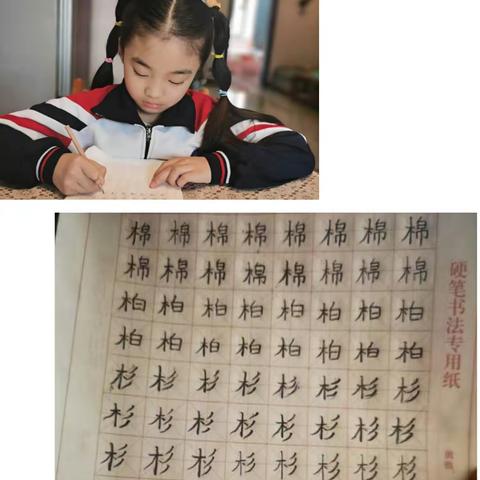 棉棉棉棉棉棉棉棉
棉棉棉棉棉棉棉棉
柏柏柏柏柏柏柏柏
柏柏柏柏柏柏柏柏
杉杉杉杉杉杉杉杉
杉杉杉杉杉杉杉杉
杉杉杉杉杉杉杉杉
硬笔书法专用纸